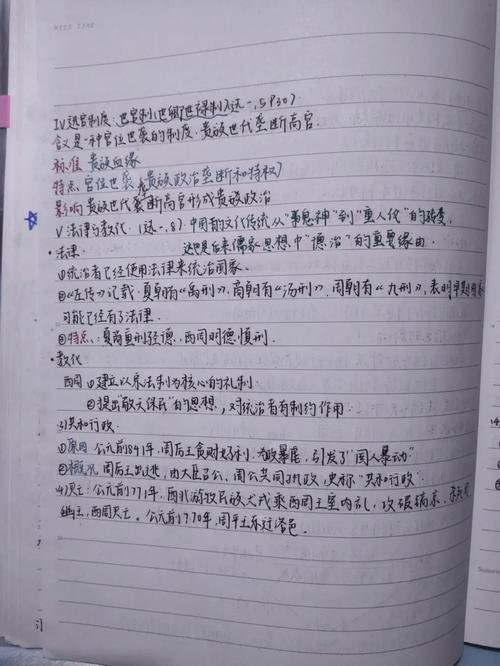 FREE TIME
IV 选官制度：世官制(世卿世禄制)(选一, 5 P30)
含义 是一种官位世袭的制度，贵族世代垄断高官.
标准 贵族血缘
特点 官位世袭，贵族政治垄断和特权)
影响 贵族世代垄断高官形成贵族政治
V 法律与教化 (选一, 8) 中国的文化传统从“事鬼神”到“重人伦”的转变,
·法律. 这也是后来儒家思想中“德治”的重要缘由.
①统治者已经使用法律来统治国家.
②《左传》记载，夏朝有《禹刑》，商朝有《汤刑》，周朝有《九刑》，表明早期国家
可能已经有了法律.
③特点：夏商重刑轻德，西周明德慎刑.
·教化
西周 ①建立以宗法制为核心的礼制.
②提出“敬天保民”的思想，对统治者有制约作用.
3)共和行政.
①原因 公元前841年，周厉王贪财好利，为政暴虐，引发了“国人暴动”
②概况 周厉王出逃，由大臣召公、周公共同执政，史称“共和行政”.
4)灭亡：公元前771年，西北游牧民族犬戎乘西周王室内乱，攻破镐京.
幽王，西周灭亡. 公元前770年，周平王东迁洛邑.